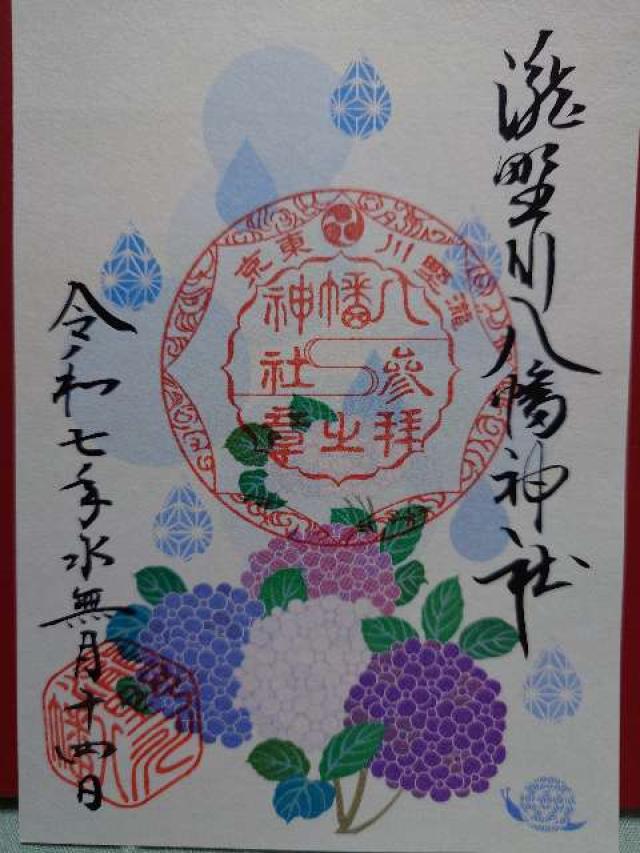 瀧野川八幡神社
東京瀧野川
八幡神社
參拜之章
令和七年水無月十四日